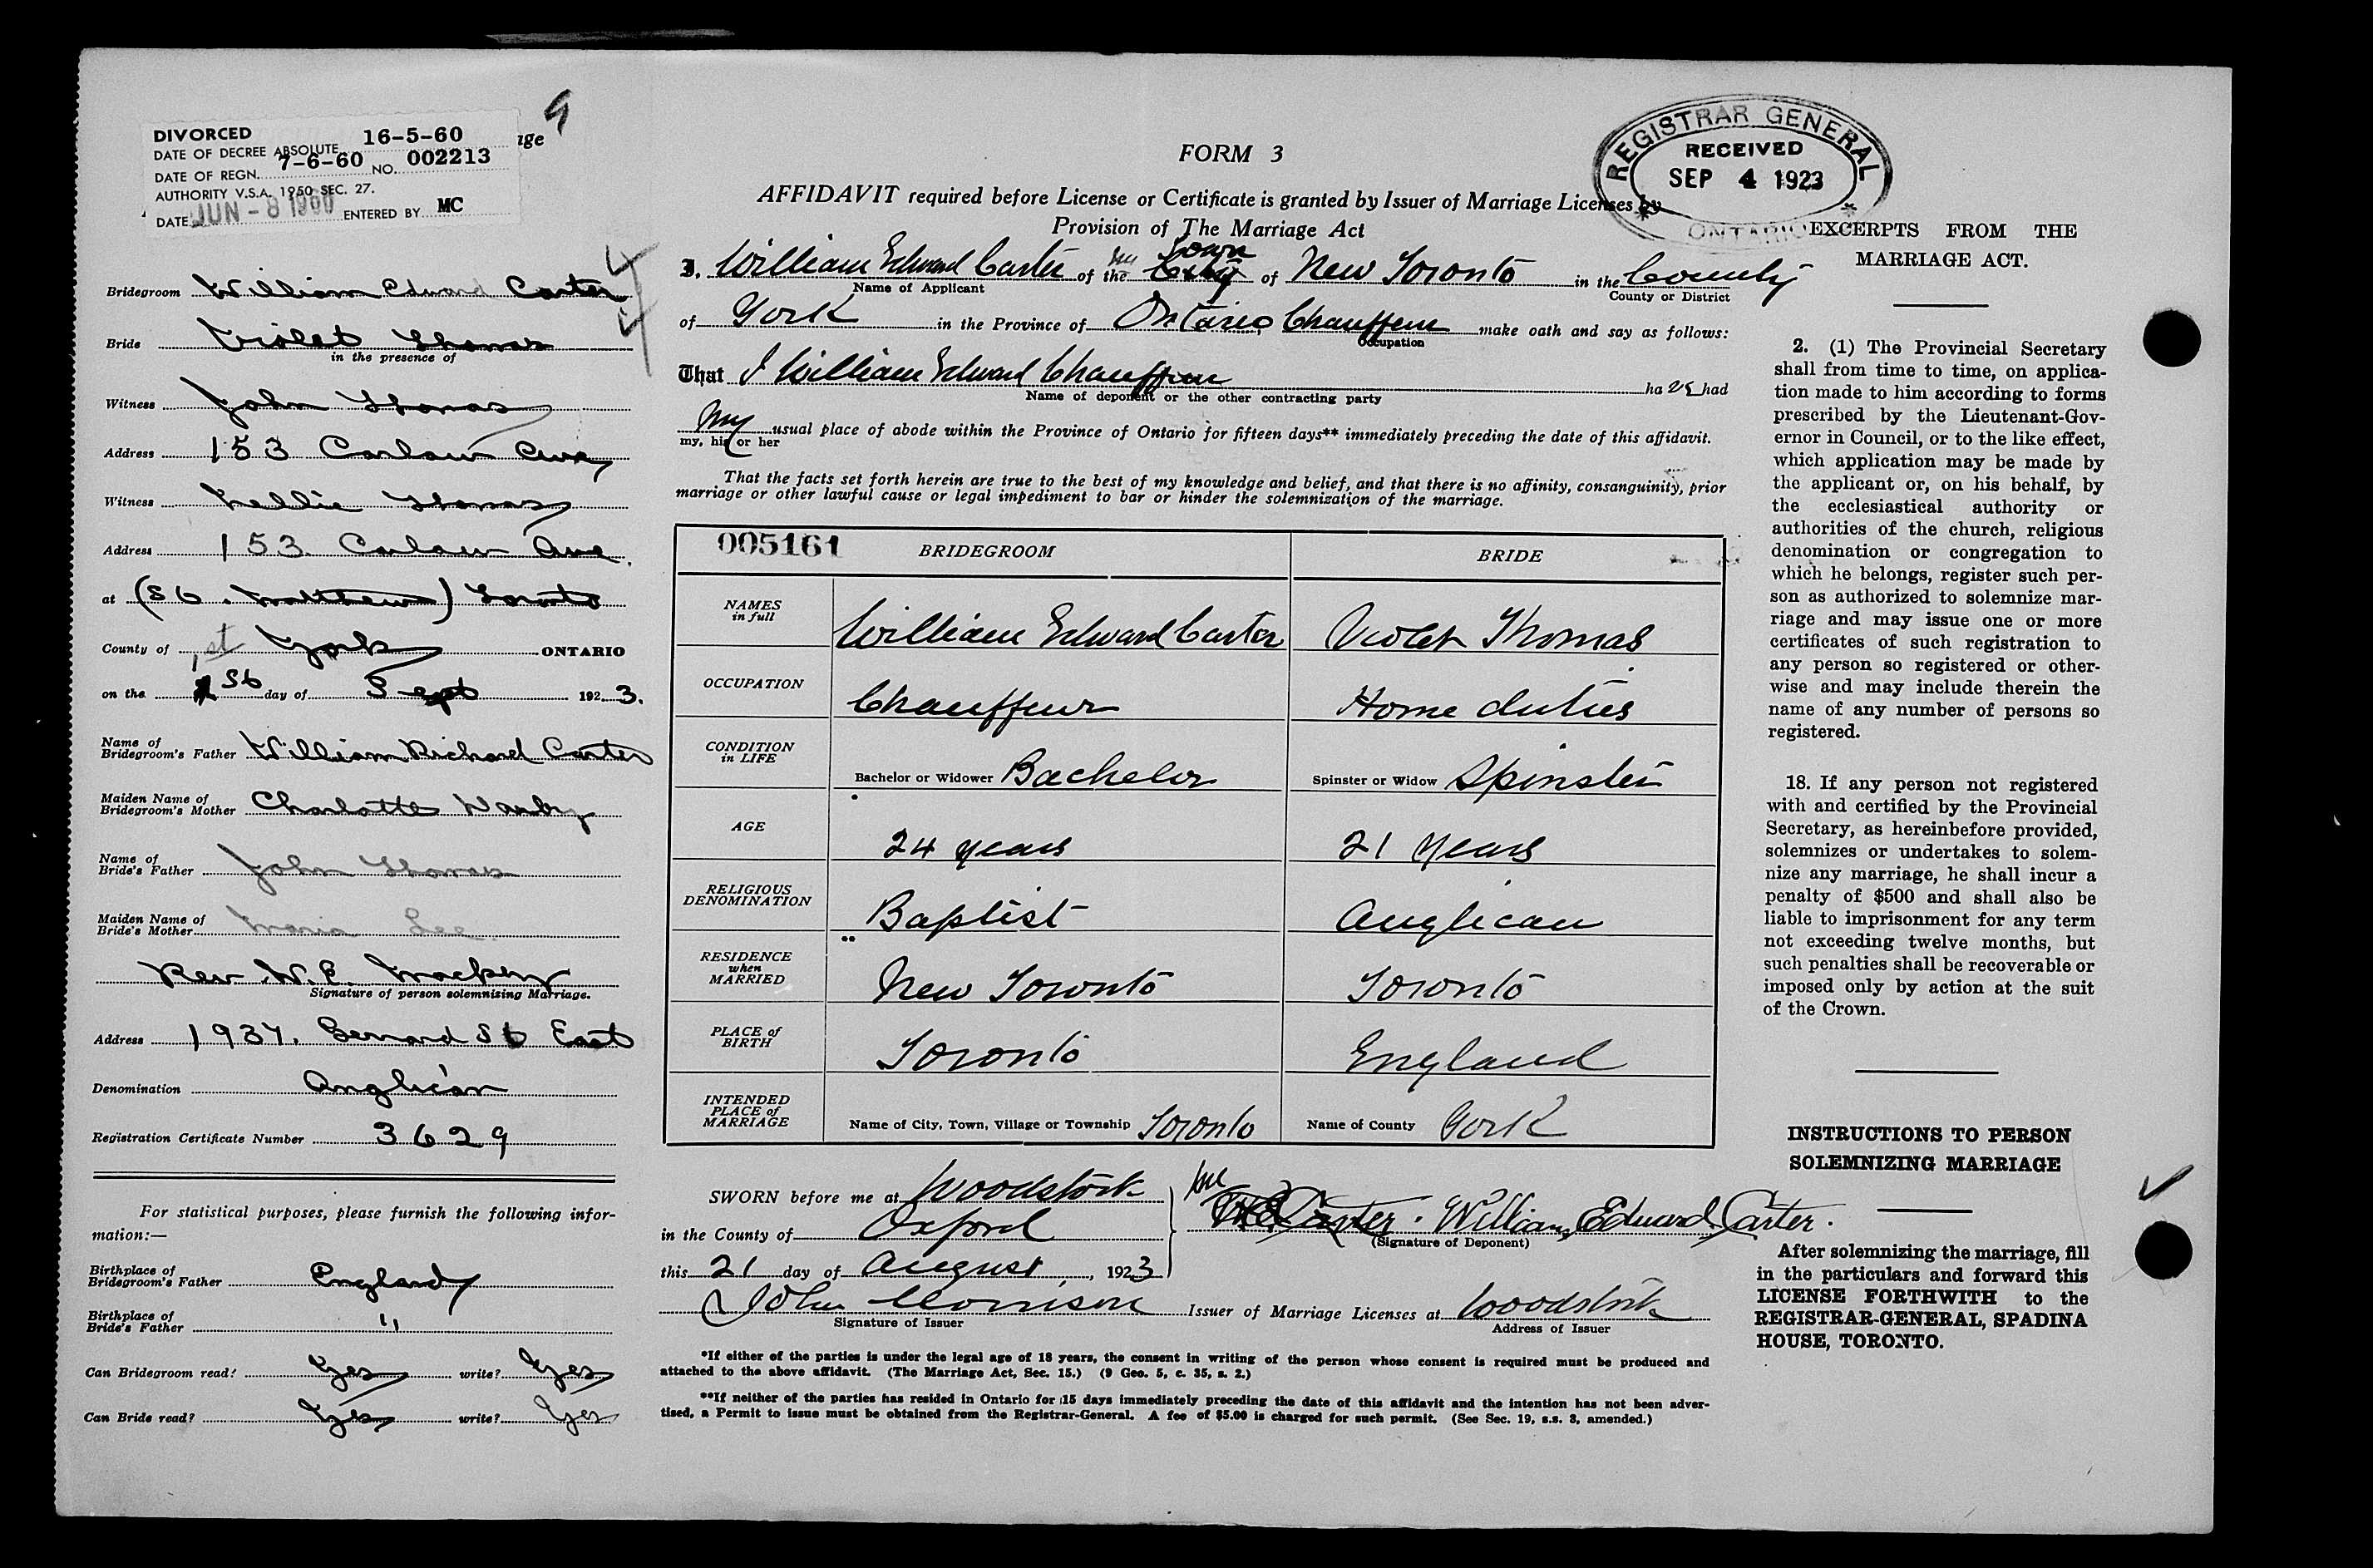 9
DIVORCED
DATE OF DECREE ABSOLUTE 16-5-60
DATE OF REGN. 7-6-60 NO. 002213
AUTHORITY V.S.A. 1950 SEC. 27.
DATE JUN - 8 1960 ENTERED BY MC
Bridegroom William Edward Carter
Bride Violet Thomas
in the presence of
Witness John Thomas
Address 153 Carlaw Ave
Witness Nellie Thomas
Address 153 Carlaw Ave.
at (St. Matthews) Toronto
County of York ONTARIO
1st
on the 1st day of Sept 1923.
Name of
Bridegroom's Father William Richard Carter
Maiden Name of
Bridegroom's Mother Charlotte
Name of
Bride's Father John Thomas
Maiden Name of
Bride's Mother Maria Lee
Rev. W.E.
Signature of person solemnizing Marriage.
Address 1937. Gerrard St East
Denomination Anglican
Registration Certificate Number 3629
For statistical purposes, please furnish the following infor-
mation:—
Birthplace of
Bridegroom's Father England
Birthplace of
Bride's Father "
Can Bridegroom read? Yes write? Yes
Can Bride read? Yes write? Yes
FORM 3
AFFIDAVIT required before License or Certificate is granted by Issuer of Marriage Licenses by
Provision of The Marriage Act
Town
I. William Edward Carter of the City of New Toronto in the County
Name of Applicant County or District
of York in the Province of Ontario Chauffeur make oath and say as follows:
Occupation
That I William Edward Chauffeur ha had
Name of deponent or the other contracting party
My usual place of abode within the Province of Ontario for fifteen days** immediately preceding the date of this affidavit.
my, his or her
That the facts set forth herein are true to the best of my knowledge and belief, and that there is no affinity, consanguinity, prior
marriage or other lawful cause or legal impediment to bar or hinder the solemnization of the marriage.
005161 BRIDEGROOM BRIDE
NAMES
in full William Edward Carter Violet Thomas
OCCUPATION Chauffeur Home duties
CONDITION
in LIFE Bachelor or Widower Bachelor Spinster or Widow Spinster
AGE 24 years 21 years
RELIGIOUS
DENOMINATION Baptist Anglican
RESIDENCE
when
MARRIED New Toronto Toronto
PLACE of
BIRTH Toronto England
INTENDED
PLACE of
MARRIAGE Name of City, Town, Village or Township Toronto Name of County York
SWORN before me at Woodstock
in the County of Oxford
W.E. Carter. William Edward Carter.
(Signature of Deponent)
this 21 day of August, 1923
John Morrison Issuer of Marriage Licenses at Woodstock
Signature of Issuer Address of Issuer
*If either of the parties is under the legal age of 18 years, the consent in writing of the person whose consent is required must be produced and
attached to the above affidavit. (The Marriage Act, Sec. 15.) (9 Geo. 5, c. 35, s. 2.)
**If neither of the parties has resided in Ontario for 15 days immediately preceding the date of this affidavit and the intention has not been adver-
tised, a Permit to issue must be obtained from the Registrar-General. A fee of $5.00 is charged for such permit. (See Sec. 19, s.s. 3, amended.)
REGISTRAR GENERAL
RECEIVED
SEP 4 1923
ONTARIO
EXCERPTS FROM THE
MARRIAGE ACT.
2. (1) The Provincial Secretary
shall from time to time, on applica-
tion made to him according to forms
prescribed by the Lieutenant-Gov-
ernor in Council, or to the like effect,
which application may be made by
the applicant or, on his behalf, by
the ecclesiastical authority or
authorities of the church, religious
denomination or congregation to
which he belongs, register such per-
son as authorized to solemnize mar-
riage and may issue one or more
certificates of such registration to
any person so registered or other-
wise and may include therein the
name of any number of persons so
registered.
18. If any person not registered
with and certified by the Provincial
Secretary, as hereinbefore provided,
solemnizes or undertakes to solem-
nize any marriage, he shall incur a
penalty of $500 and shall also be
liable to imprisonment for any term
not exceeding twelve months, but
such penalties shall be recoverable or
imposed only by action at the suit
of the Crown.
INSTRUCTIONS TO PERSON
SOLEMNIZING MARRIAGE
After solemnizing the marriage, fill
in the particulars and forward this
LICENSE FORTHWITH to the
REGISTRAR-GENERAL, SPADINA
HOUSE, TORONTO.